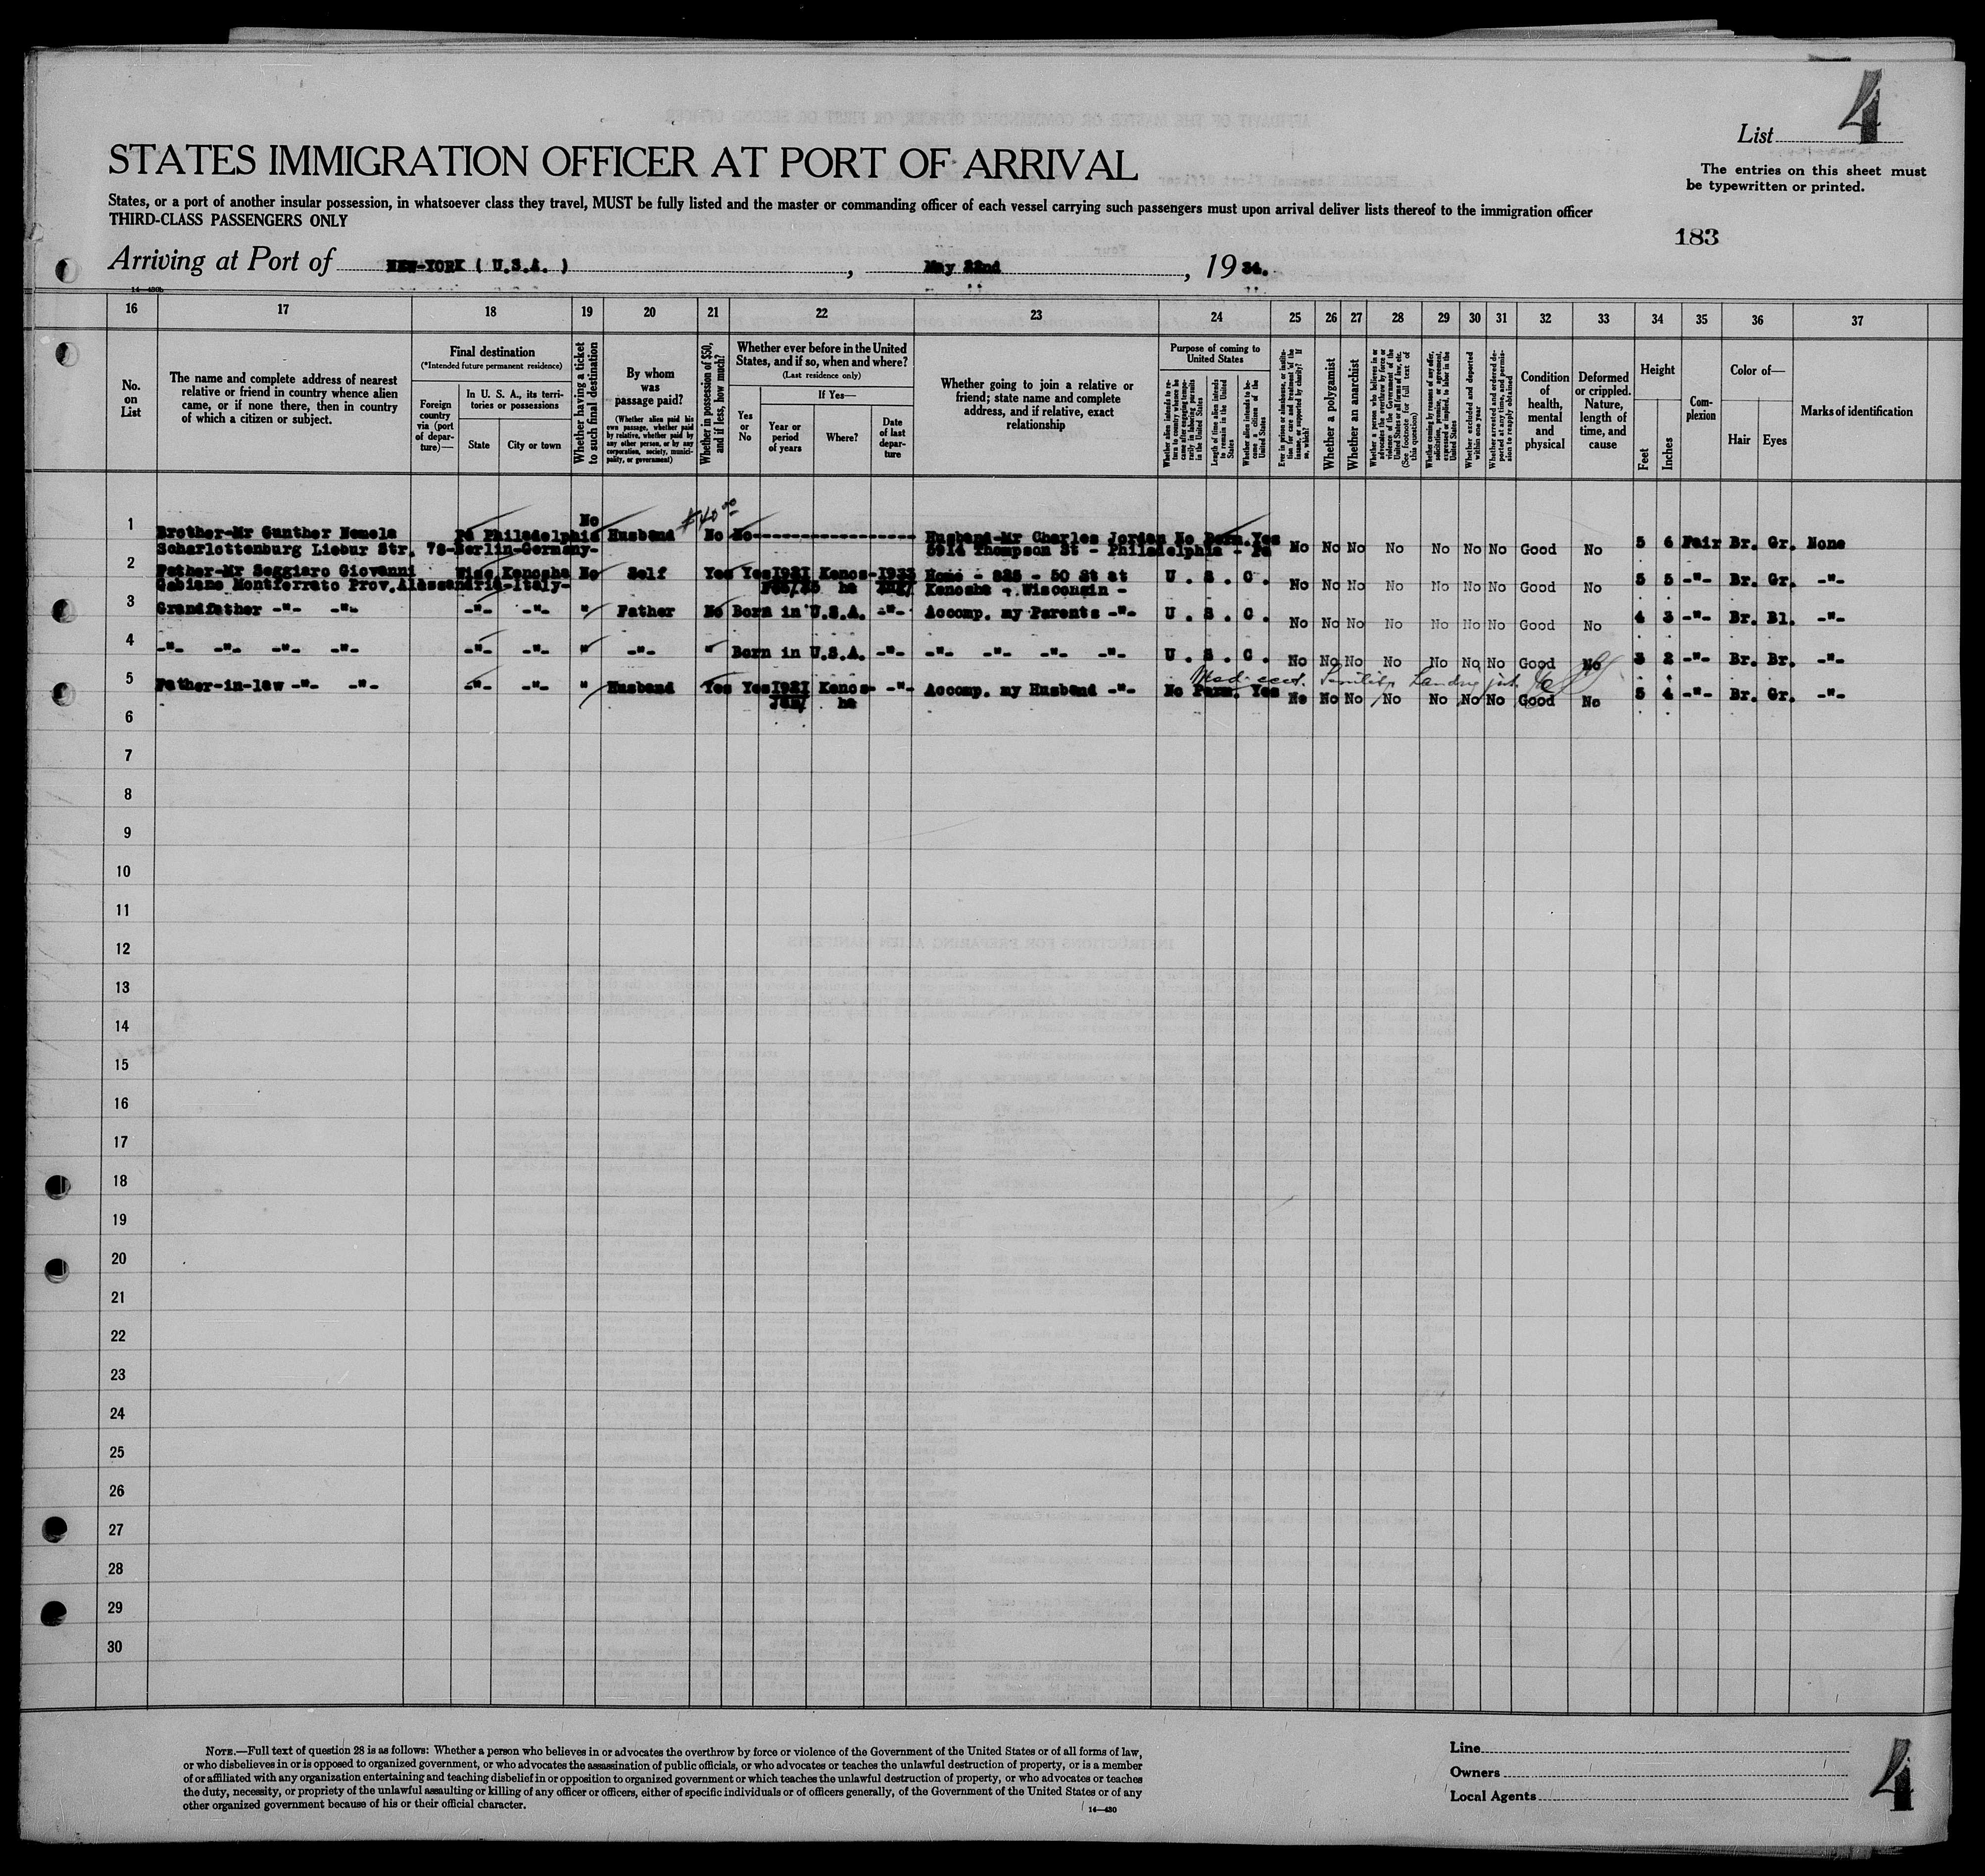 List 4
STATES IMMIGRATION OFFICER AT PORT OF ARRIVAL
The entries on this sheet must
be typewritten or printed.
States, or a port of another insular possession, in whatsoever class they travel, MUST be fully listed and the master or commanding officer of each vessel carrying such passengers must upon arrival deliver lists thereof to the immigration officer
THIRD-CLASS PASSENGERS ONLY
183
Arriving at Port of NEW-YORK ( U.S.A. ) , May 22nd , 19 34.
14—430b
16 17 18 19 20 21 22 23 24 25 26 27 28 29 30 31 32 33 34 35 36 37
No. on List
The name and complete address of nearest relative or friend in country whence alien came, or if none there, then in country of which a citizen or subject.
Final destination
(*Intended future permanent residence)
Foreign country via (port of departure)—
In U. S. A., its territories or possessions
State
City or town
Whether having a ticket to such final destination
By whom was passage paid?
(Whether alien paid his own passage, whether paid by relative, whether paid by any other person, or by any corporation, society, municipality, or government)
Whether in possession of $50, and if less, how much?
Whether ever before in the United States, and if so, when and where?
(Last residence only)
Yes or No
If Yes—
Year or period of years
Where?
Date of last departure
Whether going to join a relative or friend; state name and complete address, and if relative, exact relationship
Purpose of coming to United States
Whether alien intends to return to country whence he came after engaging temporarily in laboring pursuits in the United States
Length of time alien intends to remain in the United States
Whether alien intends to become a citizen of the United States
Ever in prison or almshouse, or institution for care and treatment of the insane, or supported by charity? If so, which?
Whether a polygamist
Whether an anarchist
Whether a person who believes in or advocates the overthrow by force or violence of the Government of the United States or all forms of law, etc. (See footnote for full text of this question)
Whether coming by reasons of any offer, solicitation, promise, or agreement, expressed or implied, to labor in the United States
Whether excluded and deported within one year
Whether arrested and ordered deported at any time and permission to reapply obtained
Condition of health, mental and physical
Deformed or crippled. Nature, length of time, and cause
Height
Feet
Inches
Complexion
Color of—
Hair
Eyes
Marks of identification
No $40.00
1 Brother-Mr Gunther Nemela Pa Philadelphia Husband No No Husband-Mr Charles Jorden No Perm. Yes
Scharlottenburg Liebur Str. 78-Berlin-Germany- 5914 Thompson St - Philadelphia - Pa No No No No No No No Good No 5 6 Fair Br. Gr. None
2 Father-Mr Seggiaro Giovanni Wisc Kenosha No Self Yes Yes 1921 Kenos- 1933 Home - 825 - 50 St at U. S. C.
Gabiano Montferrato Prov.Alessandria-Italy- ha Kenosha - Wisconsin - No No No No No No No Good No 5 5 -"- Br. Gr. -"-
3 Grandfather -"- -"- -"- -"- " Father No Born in U.S.A. -"- Accomp. my Parents -"- U. S. C. No No No No No No No Good No 4 3 -"- Br. Bl. -"-
4 -"- -"- -"- -"- -"- -"- " -"- " Born in U.S.A. -"- -"- -"- -"- -"- U. S. C. No No No No No No No Good No 3 2 -"- Br. Br. -"-
Med. cert. Landing
5 Father-in-law -"- -"- -"- -"- " Husband Yes Yes 1921 Kenos- -"- Accomp. my Husband -"- No Perm. Yes No No No No No No No Good No 5 4 -"- Br. Gr. -"-
ha
6
7
8
9
10
11
12
13
14
15
16
17
18
19
20
21
22
23
24
25
26
27
28
29
30
NOTE.—Full text of question 28 is as follows: Whether a person who believes in or advocates the overthrow by force or violence of the Government of the United States or of all forms of law,
or who disbelieves in or is opposed to organized government, or who advocates the assassination of public officials, or who advocates or teaches the unlawful destruction of property, or is a member
of or affiliated with any organization entertaining and teaching disbelief in or opposition to organized government or which teaches the unlawful destruction of property, or who advocates or teaches
the duty, necessity, or propriety of the unlawful assaulting or killing of any officer or officers, either of specific individuals or of officers generally, of the Government of the United States or of any
other organized government because of his or their official character.
14—430
Line
Owners
Local Agents
4